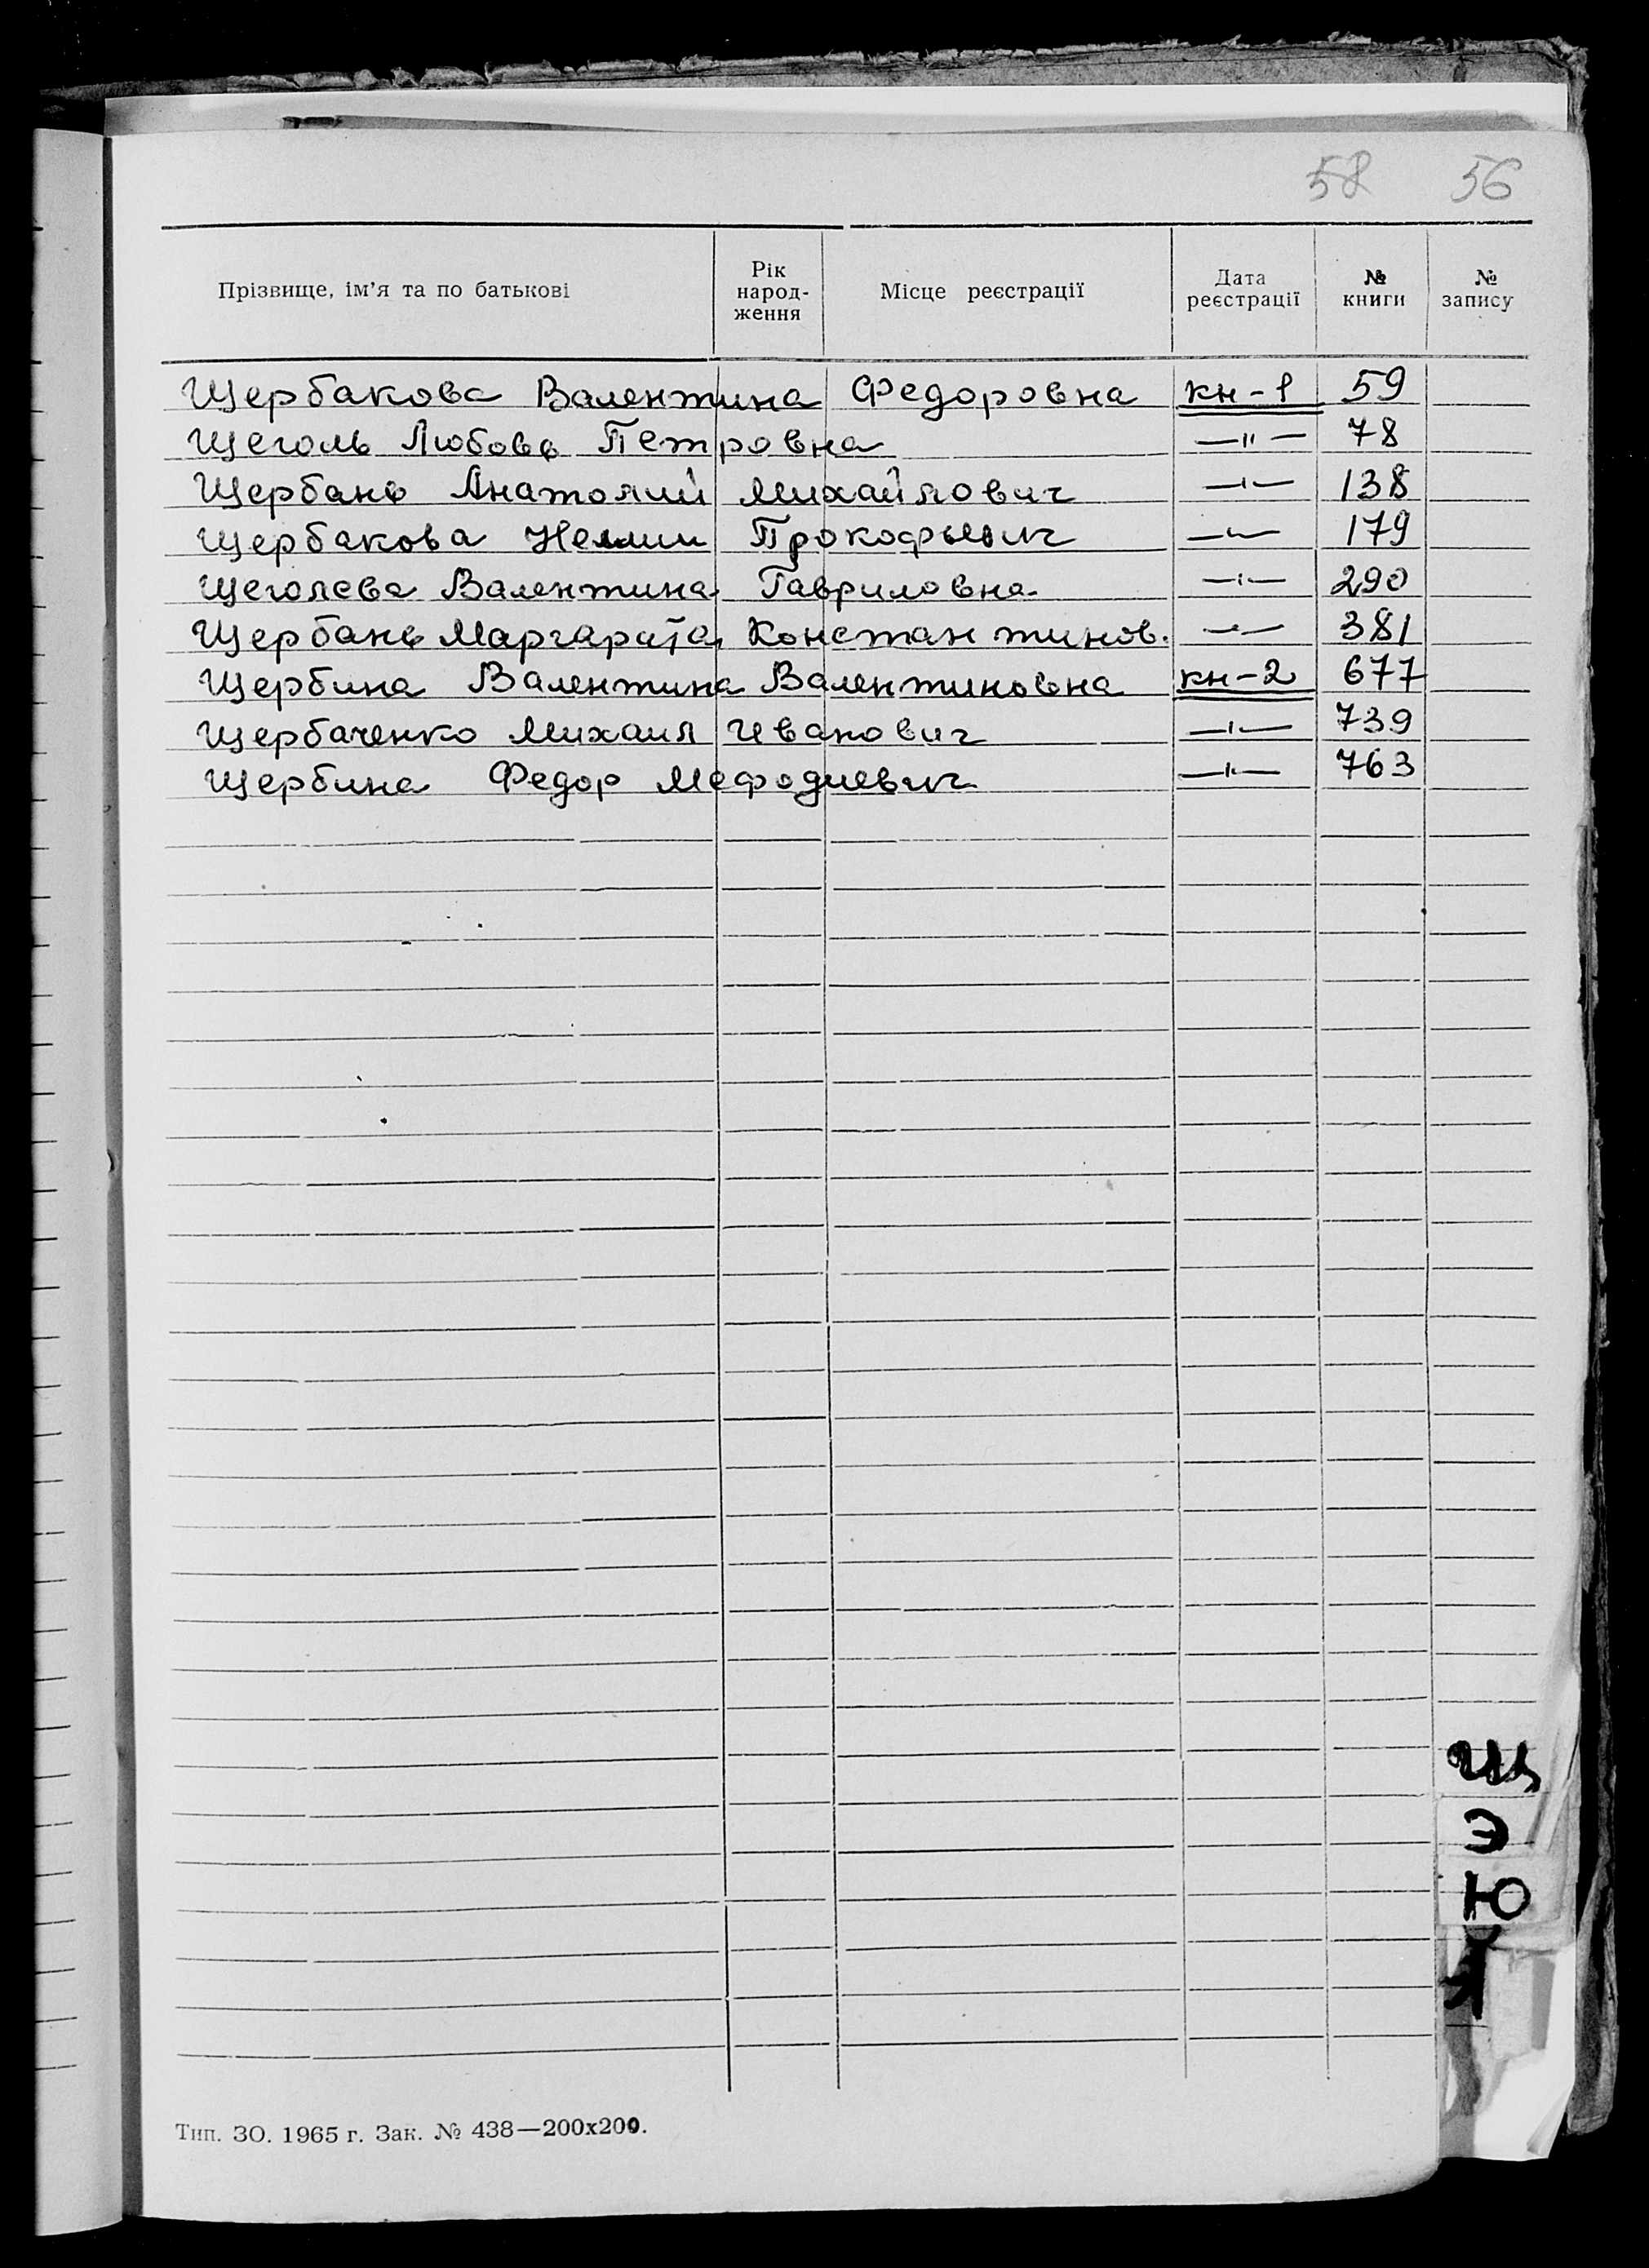 58 56
Прізвище, ім'я та по батькові Рік народ-ження Місце реєстрації Дата реєстрації № книги № запису
Щербакова Валентина Федоровна кн-1 59
Щеголь Любовь Петровна —"— 78
Щербань Анатолий Михайлович —"— 138
Щербакова Прокофьевич —"— 179
Щеголева Валентина Гавриловна —"— 290
Щербань Маргарита Константинов. —"— 381
Щербина Валентина Валентиновна кн-2 677
Щербаченко Михаил Иванович —"— 739
Щербина Федор Мефодиевич —"— 763
Щ
Э
Ю
Тип. ЗО. 1965 г. Зак. № 438—200х200.